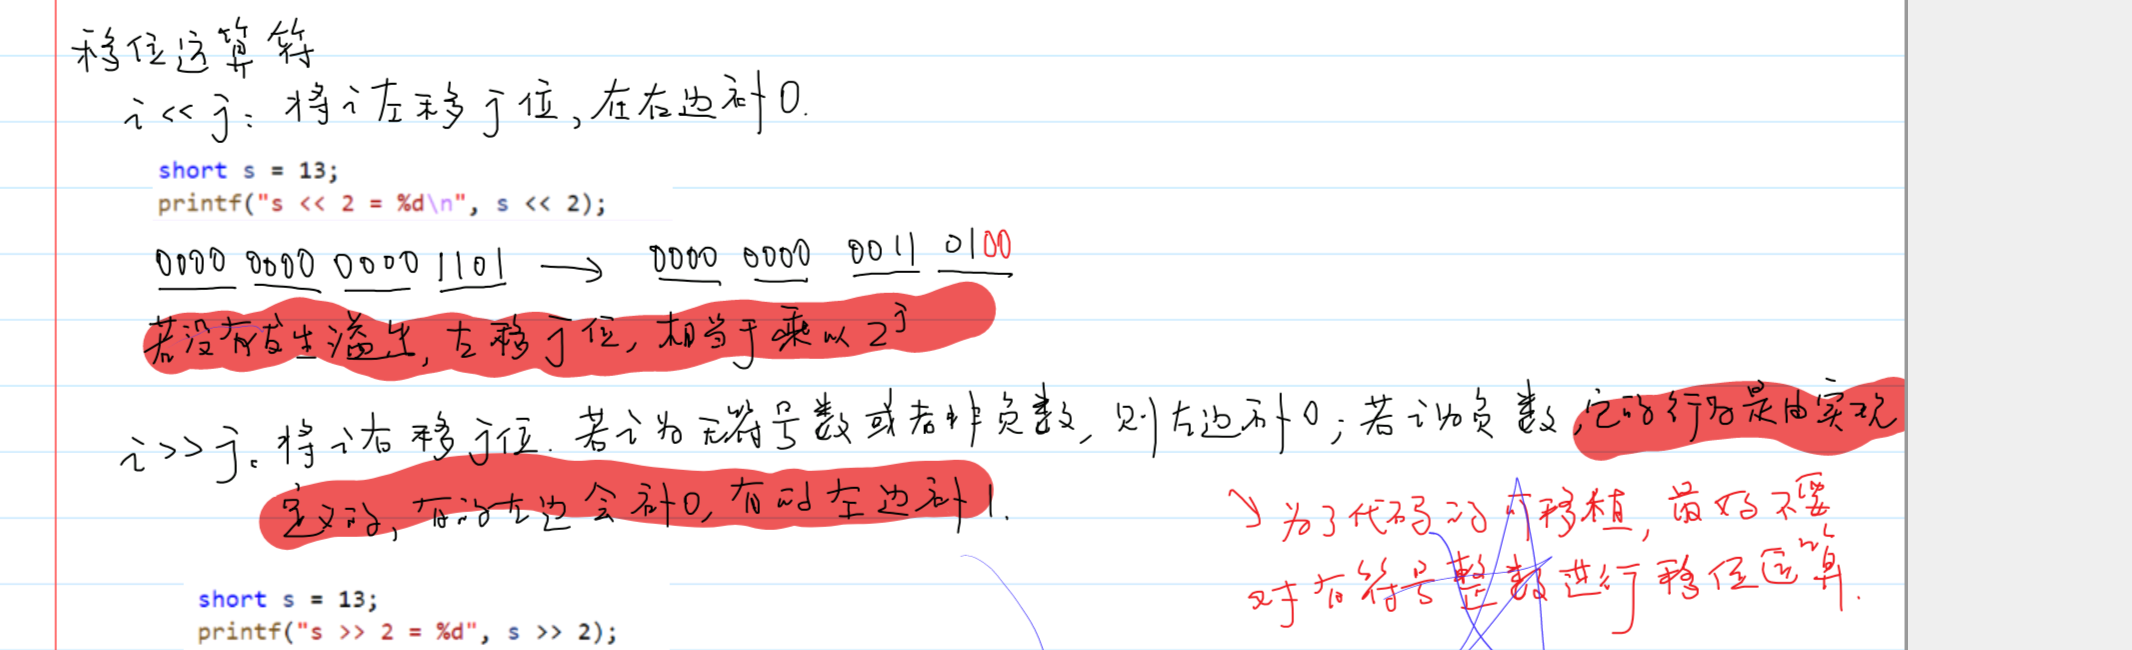 移位运算符
i << j: 将i左移j位,在右边补0.
short s = 13;
printf("s << 2 = %d\n", s << 2);
0000 0000 0000 1101 → 0000 0000 0011 0100
若没有发生溢出,左移j位,相当于乘以2^j
i >> j: 将i右移j位.若i为无符号数或者非负数,则左边补0;若i为负数,它的行为是由实现
定义的,有的左边会补0,有的左边补1.
↘ 为了代码的可移植,最好不要
对有符号整数进行移位运算.
short s = 13;
printf("s >> 2 = %d", s >> 2);